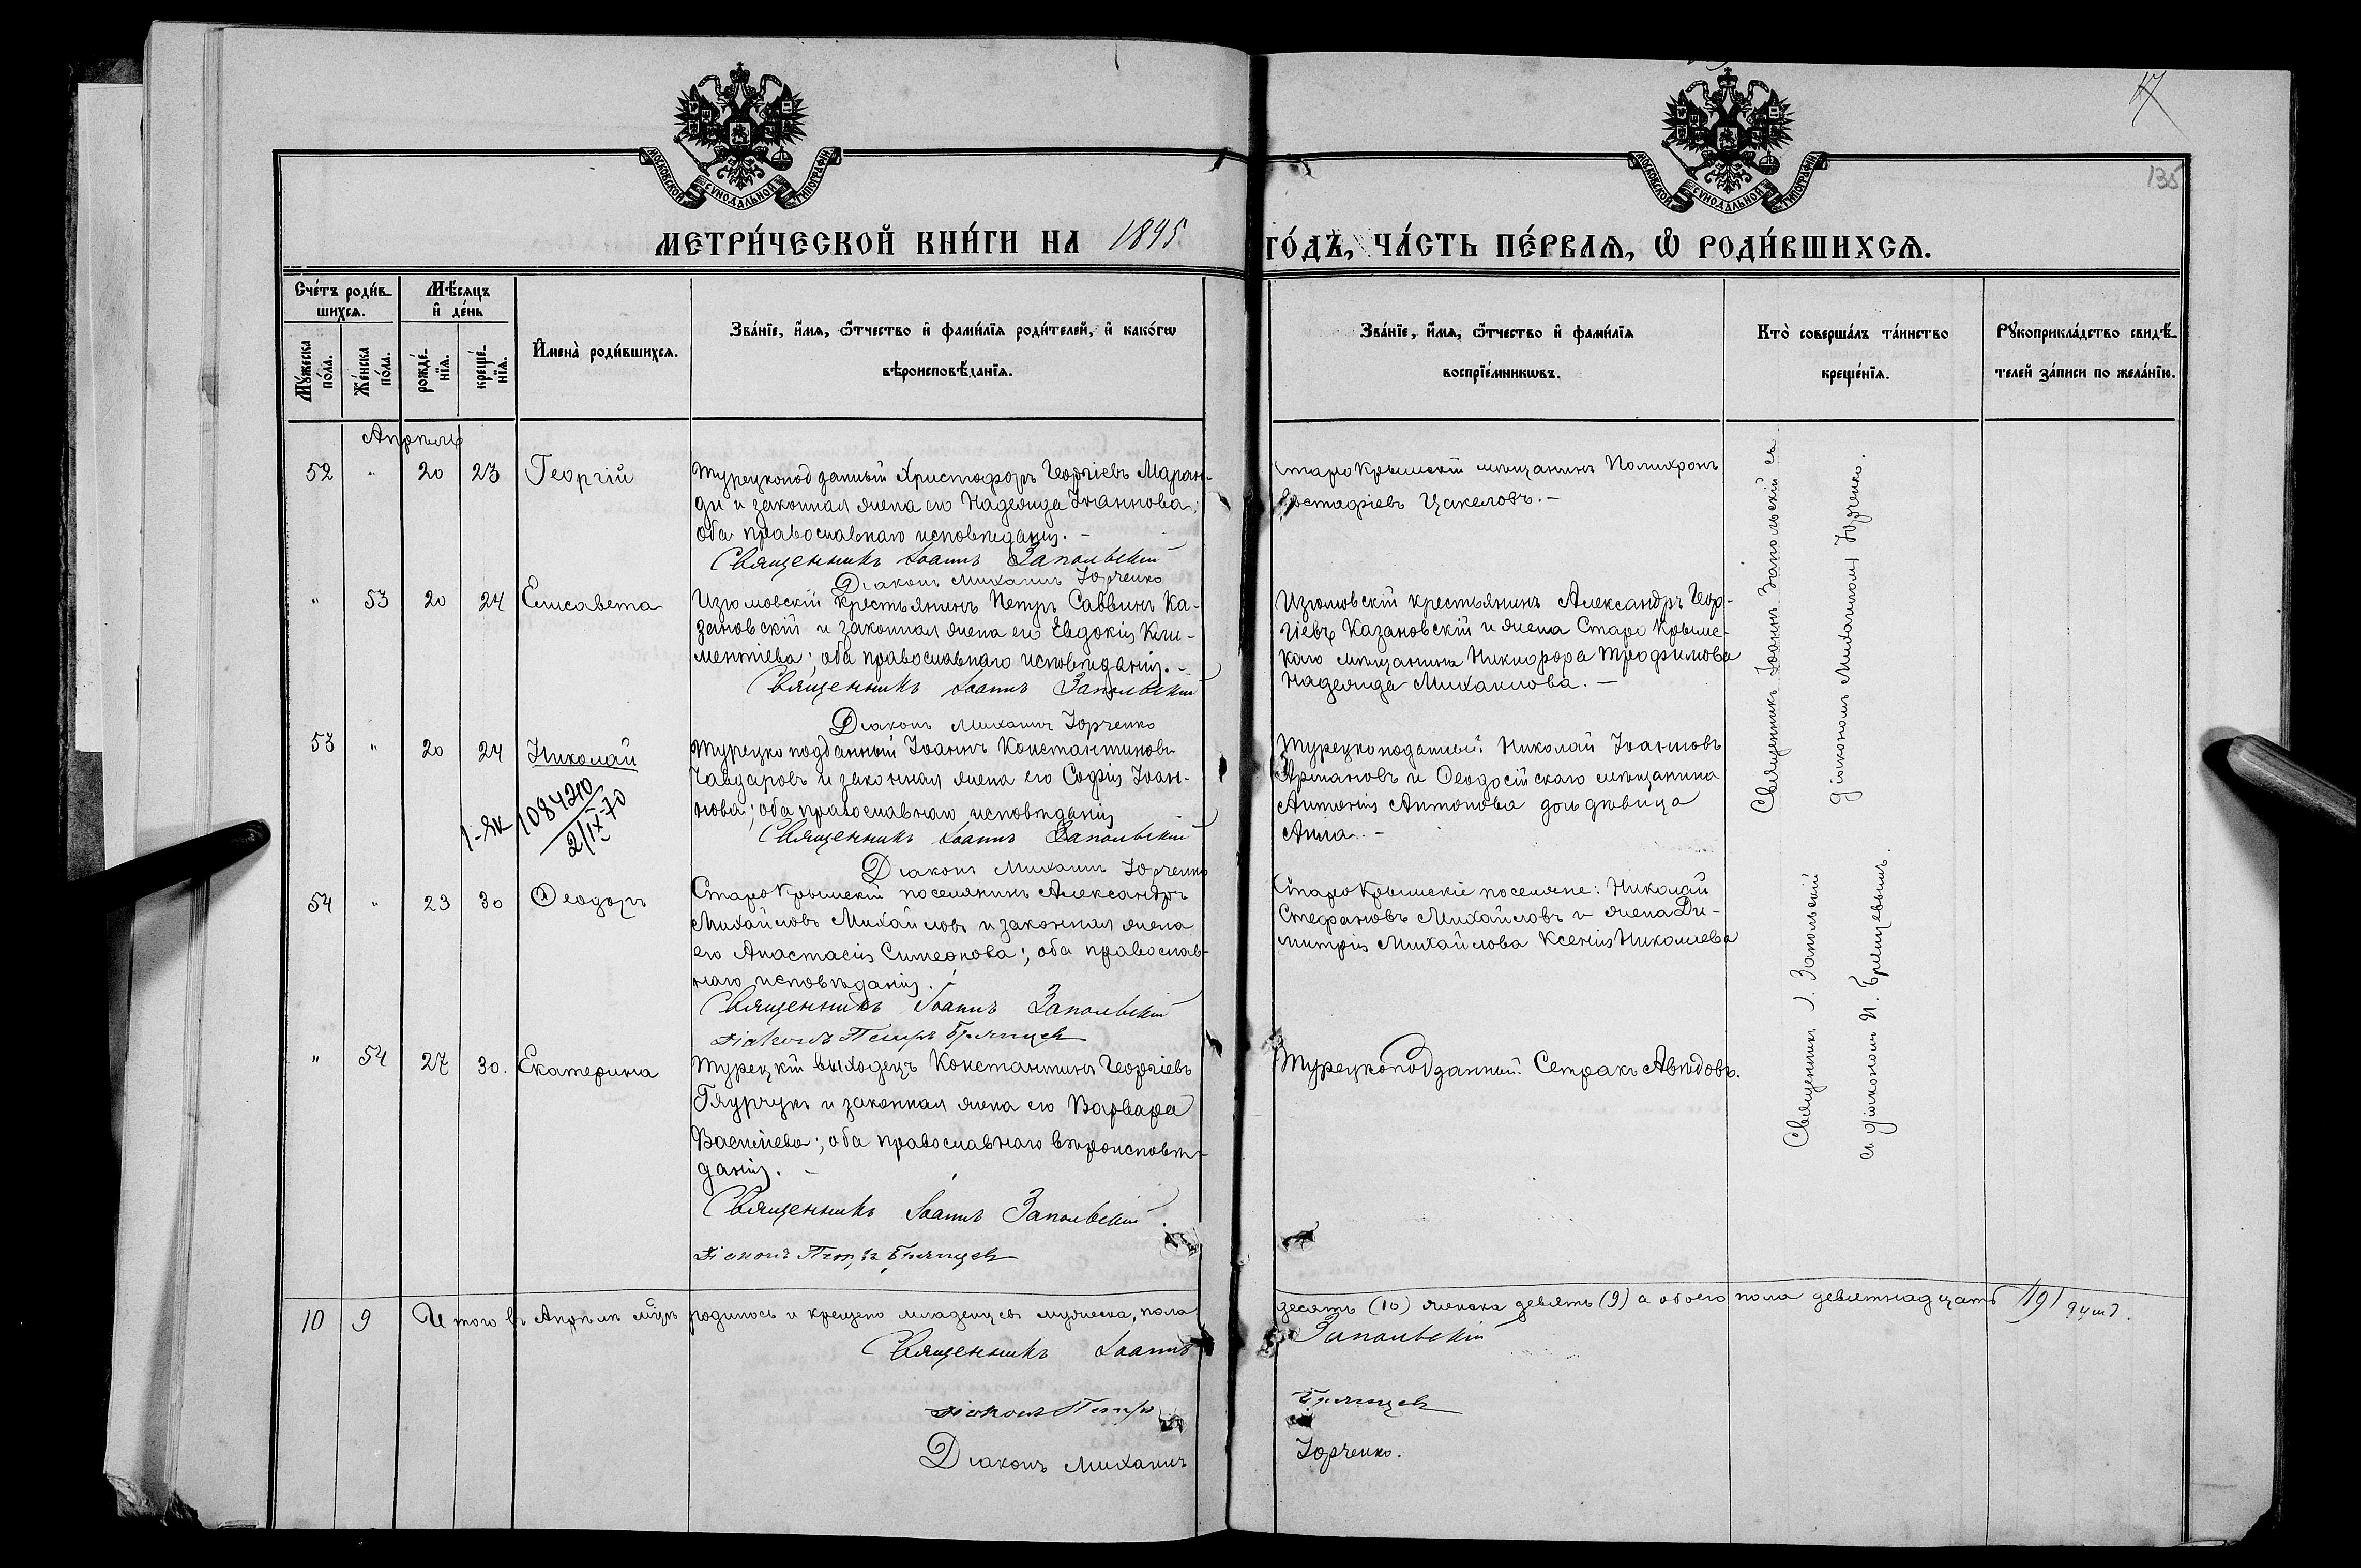 МОСКОВСКОЙ СѴНОДАЛЬНОЙ ТИПОГРАФІИ
МОСКОВСКОЙ СѴНОДАЛЬНОЙ ТИПОГРАФІИ
17
135
МЕТРИ́ЧЕСКОЙ КНИ́ГИ НА 1895 ГО́ДЪ, ЧА́СТЬ ПЕ́РВАѦ, Ѡ҆ РОДИ́ВШИХСѦ.
Сче́тъ роди́в-
шихсѧ.
Мꙋ́жеска
по́ла.
Же́нска
по́ла.
Мѣ́сѧцъ
и҆ де́нь
рожде́-
нїѧ.
креще́-
нїѧ.
И҆мена̀ роди́вшихсѧ.
Зва́нїе, и҆́мѧ, ѻ҆́тчество и҆ фами́лїѧ роди́телей, и҆ како́гѡ
вѣроисповѣ́данїѧ.
Зва́нїе, и҆́мѧ, ѻ҆́тчество и҆ фами́лїѧ
воспрїе́мникѡвъ.
Кто̀ соверша́лъ та́инство
креще́нїѧ.
Рꙋкоприкла́дство свидѣ́-
телей за́писи по жела́нїю.
Апрѣль
52 " 20 23 Георгій
Турецкоподданный Христофоръ Георгіевъ Маран-
ди и законная жена его Надежда Іоаннова;
оба православнаго исповѣданія. -
Священникъ Іоаннъ Запольскій
Діаконъ Михаилъ Юрченко
Старо Крымскій мѣщанинъ Полихронъ
Евстафіевъ Цакеловъ. -
" 53 20 24 Елисавета
Изюмовскій крестьянинъ Петръ Саввинъ Ка-
зановскій и законная жена его Евдокія Кли-
ментіева; оба православнаго исповѣданія. -
Священникъ Іоаннъ Запольскій
Діаконъ Михаилъ Юрченко
Изюмовскій крестьянинъ Александръ Геор-
гіевъ Казановскій и жена Старо Крымс-
каго мѣщанина Никифора Трофимова
Надежда Михаилова. -
53 " 20 24 Николай
1-ЯК 1084210
2/IX-70
Турецко подданный Іоаннъ Константиновъ
Чавдаровъ и законная жена его Софія Іоан-
нова; оба православнаго исповѣданія
Священникъ Іоаннъ Запольскій
Діаконъ Михаилъ Юрченко
Турецкоподанный Николай Іоанновъ
Армановъ и Ѳеодосійскаго мѣщанина
Антонія Антонова дочь дѣвица
Анна. -
54 " 23 30 Ѳеодоръ
Старо Крымскій поселянинъ Александръ
Михайловъ Михайловъ и законная жена
его Анастасія Симеонова; оба православ-
наго исповѣданія.
Священникъ Іоаннъ Запольскій
Діаконъ Петръ Брянцев
Старо Крымскіе поселяне: Николай
Стефановъ Михайловъ и жена Ди-
митрія Михайлова Ксенія Николаева
" 54 27 30. Екатерина
Турецкій выходецъ Константинъ Георгіевъ
Гяурчукъ и законная жена его Варвара
Василіева; оба православнаго вѣроисповѣ-
данія. -
Священникъ Іоаннъ Запольскій.
Діаконъ Петръ Брянцев
Турецкоподданный Сетракъ Авѣдовъ.
Священникъ Іоаннъ Запольскій съ
діакономъ Михаиломъ Юрченко.
Священникъ І. Запольскій
съ діакономъ П. Брянцевымъ.
10 9 Итого въ Апрѣлѣ мцѣ родилось и крещено младенцевъ мужеска, пола десять (10) женска девять (9) а обоего пола девятнадцать (19) душъ.
Священникъ Іоаннъ Запольскій
Діаконъ Петръ Брянцев
Діаконъ Михаилъ Юрченко.